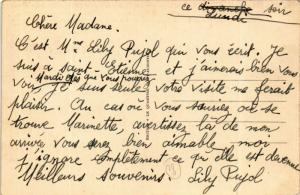 ce dimanche soir
Lundi
Chère Madame.
C'est Mme Lily Pujol qui vous écrit. Je
suis à saint-Etienne et j'aimerais bien vous
Mardi dès que vous pourrez
voir je suis seule votre visite me ferait
plaisir. Au cas où vous sauriez où se
trouve Marinette, avertissez là de mon
arrivée vous serez bien aimable moi
j'ignore complètement ce qu'elle est devenue
Meilleurs souvenirs. Lily Pujol